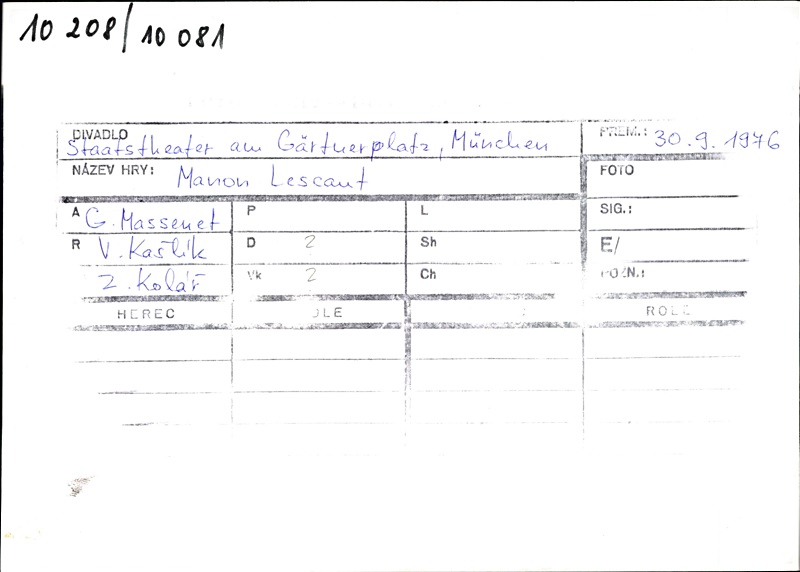 10 208/10 081
DIVADLO
Staatstheater am Gärtnerplatz, München
PREM.: 30.9.1976
NÁZEV HRY: Manon Lescaut
FOTO
A G. Massenet
P
L
SIG.:
R V. Kašlík
D 2
Sh
E/
Z. Kolář
Vk 2
Ch
POZN.:
HEREC
ROLE